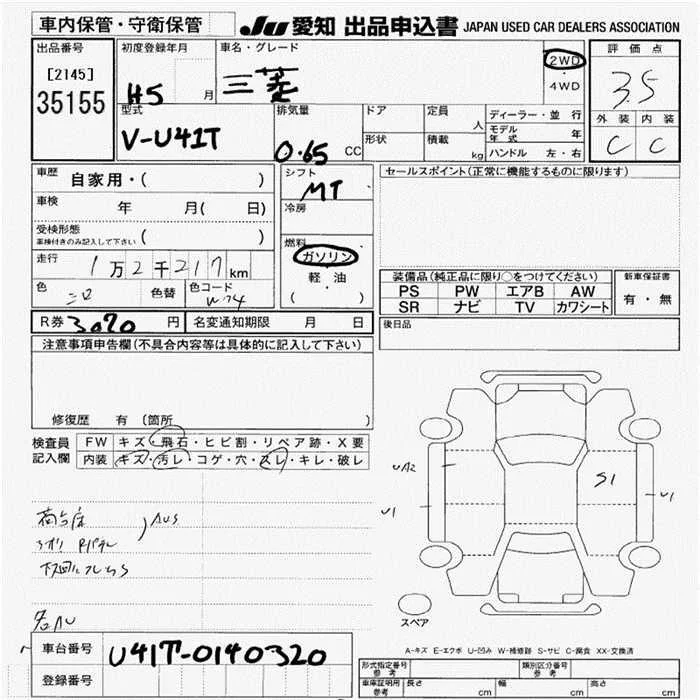 車内保管・守衛保管
JU 愛知 出品申込書 JAPAN USED CAR DEALERS ASSOCIATION
出品番号
[2145]
35155
初度登録年月
H5 月
車名・グレード
三菱
2WD
・
4WD
評価点
3.5
外装 内装
C C
型式
V-U41T
排気量
0.65 CC
ドア
形状
定員
人
積載
kg
ディーラー・並行
モデル年式 年
ハンドル 左・右
車歴 自家用・( )
車検 年 月( 日)
受検形態
車検付きのみ記入して下さい ( )
走行 1万2千217km
色 シロ 色替 色コード W-74
シフト
MT
冷房
燃料
ガソリン
・
軽油
( )
セールスポイント(正常に機能するものに限ります)
装備品(純正品に限り○をつけてください)
PS PW エアB AW
SR ナビ TV カワシート
新車保証書
有・無
R券 3070 円 名変通知期限 月 日
後日品
注意事項申告欄(不具合内容等は具体的に記入して下さい)
修復歴 有 (箇所 )
検査員記入欄
FW キズ・飛石・ヒビ割・リペア跡・X要
内装 キズ・汚レ・コゲ・穴・スレ・キレ・破レ
荷台床
AUS
UA2
U1
S1
U1
スペア
A-キズ E-エクボ U-凹み W-補修跡 S-サビ C-腐食 XX-交換済
車台番号 U41T-0140320
登録番号
形式指定番号
参考
類別区分番号
参考
車庫証明用
参考
長さ cm 幅 cm 高さ cm